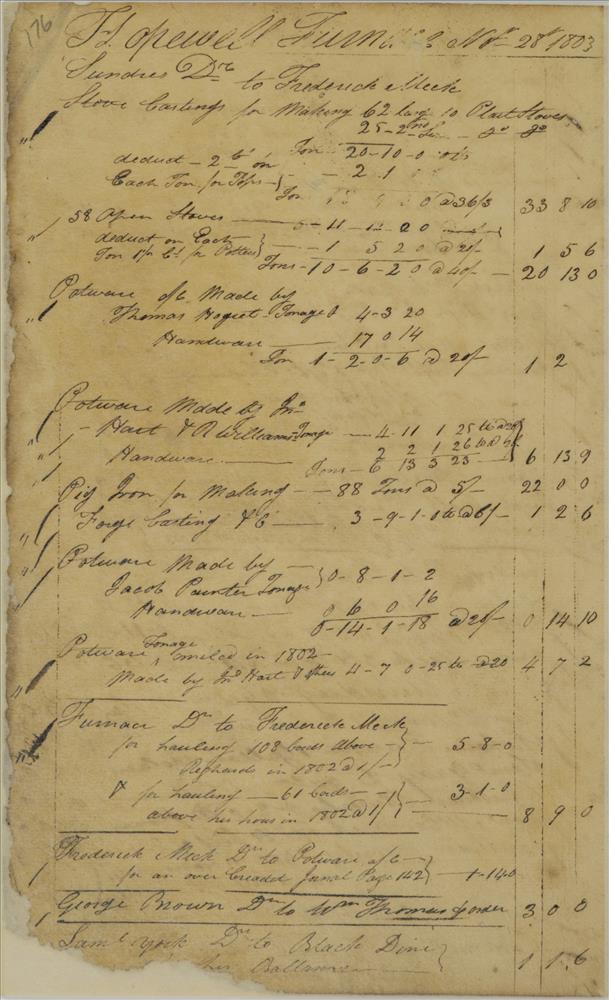 176
Hopewell Furnace Nov 28th 1803
Sundres Drs to Frederick Meck
Stove Castings for Making 62 large 10 Plate Stoves
25-2
deduct - 2 Ct on Ton 20-10-0
Each Ton for Tops - 2 1
Ton 0 @ 36/3 33 8 10
58 Open Stoves 11 - 12 2 0
deduct on Each } 1 5 2 0 @ 20/ 1 5 6
Ton for Potters } Tons - 10 - 6 - 2 0 @ 40/ - 20 13 0
Potware a/c Made by
Thomas Tonage 4-3 20
Handware 17 0 14
Ton 1-2-0-6 @ 20/ 1 2
Potware Made by Jno
Hart & A Williams Tonage 4 - 11 1 25
Handware 2 2 1 26
Tons - 6 13 3 23 6 13 9
Pig Iron for Making - 88 Tons @ 5/- 22 0 0
Forge Casting &c 3-9-1-0 @ 6/- 1 2 6
Potware Made by
Jacob Painter Tonage } 0-8-1-2
Handware - 0 6 0 16
0-14-1-18 @ 20/ 0 14 10
Potware Tonage in 1802
Made by Jno Hart & 4-7 0-25 @ 20 4 7 2
Furnace Dr to Frederick Meck
for hauling 108 loads above } 5-8-0
in 1802 @ 1/-
& for hauling - 61 loads } 3-1-0
above his hous in 1802 @ 1/ 8 9 0
Frederick Meck Dr to Potware a/c
for an over Page 142 } 1-14-0
George Brown Dr to Wm Thomas order 3 0 0
Saml York Dr to Black Dine }
his Ballance 1 1 6